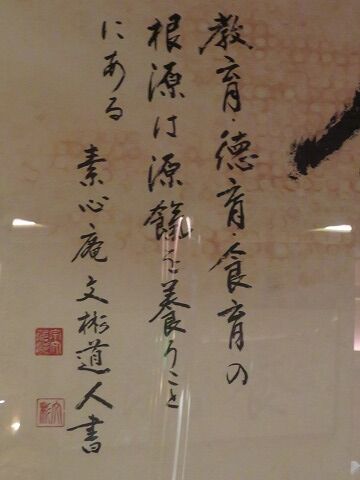 教育・德育・食育の
根源は源氣を養うこと
にある 素心庵文彬道人書